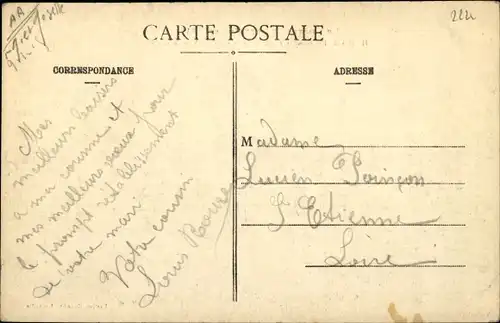 AR
222
CARTE POSTALE
CORRESPONDANCE
ADRESSE
Mes
meilleurs baisers
a ma cousine et
mes meilleurs vœux pour
le prompt rétablissement
de votre mari
Votre cousin
Louis
Madame
Lucien Poinçon
St Etienne
Loire